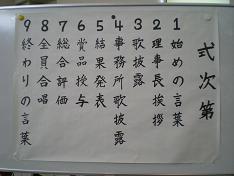 式次第
1 始めの言葉
2 理事長挨拶
3 歌披露
4 事務所歌披露
5 結果発表
6 賞品授与
7 総合評価
8 全員合唱
9 終わりの言葉